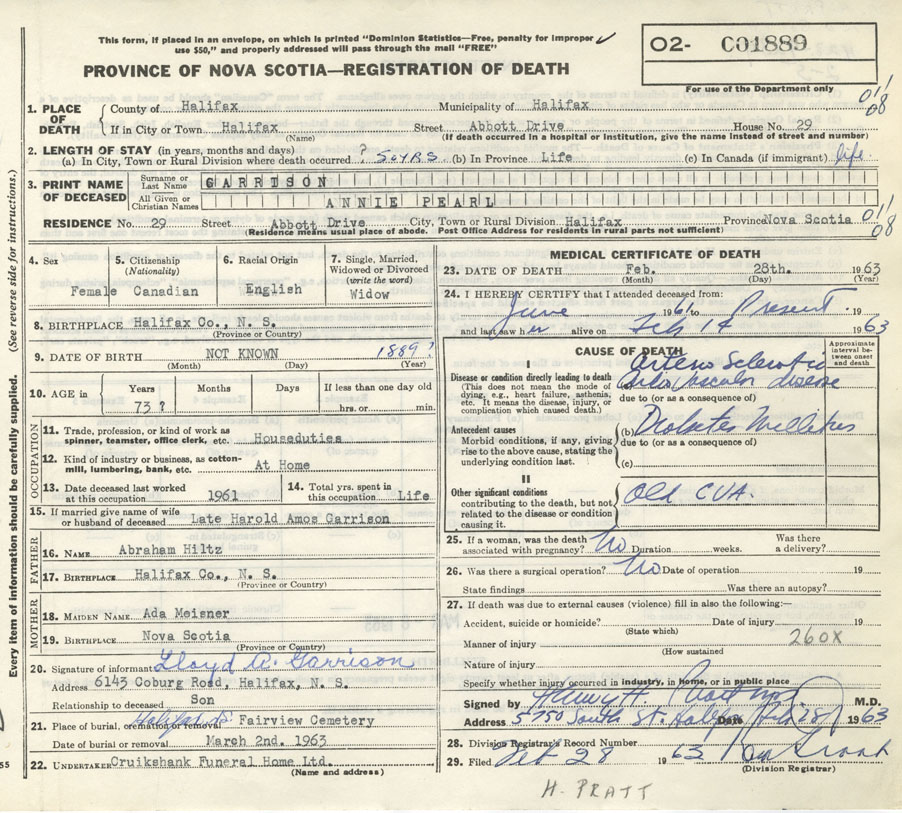 This form, if placed in an envelope, on which is printed "Dominion Statistics—Free, penalty for improper
use $50," and properly addressed will pass through the mail "FREE"
O2- C01889
For use of the Department only
PROVINCE OF NOVA SCOTIA—REGISTRATION OF DEATH
1. PLACE OF DEATH
County of Halifax Municipality of Halifax
If in City or Town Halifax Street Abbott Drive House No. 29
(Name) (If death occurred in a hospital or institution, give the name instead of street and number)
2. LENGTH OF STAY (in years, months and days)
(a) In City, Town or Rural Division where death occurred ? 50 YRS. (b) In Province Life (c) In Canada (if immigrant) life.
3. PRINT NAME OF DECEASED
Surname or Last Name GARRISON
All Given or Christian Names ANNIE PEARL
RESIDENCE No. 29 Street Abbott Drive City, Town or Rural Division Halifax Province Nova Scotia
(Residence means usual place of abode. Post Office Address for residents in rural parts not sufficient)
4. Sex
Female
5. Citizenship (Nationality)
Canadian
6. Racial Origin
English
7. Single, Married, Widowed or Divorced (write the word)
Widow
8. BIRTHPLACE Halifax Co., N. S.
(Province or Country)
9. DATE OF BIRTH NOT KNOWN 1889?
(Month) (Day) (Year)
10. AGE in Years Months Days If less than one day old
73 ? hrs. or min.
OCCUPATION
11. Trade, profession, or kind of work as spinner, teamster, office clerk, etc. Houseduties
12. Kind of industry or business, as cotton-mill, lumbering, bank, etc. At Home
13. Date deceased last worked at this occupation 1961
14. Total yrs. spent in this occupation Life
15. If married give name of wife or husband of deceased Late Harold Amos Garrison
FATHER
16. NAME Abraham Hiltz
17. BIRTHPLACE Halifax Co., N. S.
(Province or Country)
MOTHER
18. MAIDEN NAME Ada Meisner
19. BIRTHPLACE Nova Scotia
(Province or Country)
20. Signature of informant Lloyd A. Garrison
Address 6143 Coburg Road, Halifax, N. S.
Relationship to deceased Son
21. Place of burial, cremation or removal Halifax Fairview Cemetery
Date of burial or removal March 2nd. 1963
22. UNDERTAKER Cruikshank Funeral Home Ltd.
(Name and address)
Every item of information should be carefully supplied. (See reverse side for instructions.)
55
MEDICAL CERTIFICATE OF DEATH
23. DATE OF DEATH Feb. 28th. 1963
(Month) (Day) (Year)
24. I HEREBY CERTIFY that I attended deceased from:
June 1961 to Present 19
and last saw her alive on Feb 14 1963
CAUSE OF DEATH
Approximate interval between onset and death
I
Disease or condition directly leading to death
(This does not mean the mode of dying, e.g., heart failure, asthenia, etc. It means the disease, injury, or complication which caused death.)
Arterio Sclerotic
Cardio Vascular disease
due to (or as a consequence of)
Antecedent causes
Morbid conditions, if any, giving rise to the above cause, stating the underlying condition last.
(b) Diabetes Mellitus
due to (or as a consequence of)
(c)
II
Other significant conditions
contributing to the death, but not related to the disease or condition causing it.
Old CVA.
25. If a woman, was the death associated with pregnancy? No Duration weeks. Was there a delivery?
26. Was there a surgical operation? No Date of operation 19
State findings Was there an autopsy?
27. If death was due to external causes (violence) fill in also the following:—
Accident, suicide or homicide? Date of injury 19
(State which)
Manner of injury 260X
(How sustained
Nature of injury
Specify whether injury occurred in industry, in home, or in public place
Signed by M.D.
Address 5750 South St. Halifax Date Feb 28 1963
28. Division Registrar's Record Number
29. Filed Feb 28 1963
(Division Registrar)
H. PRATT